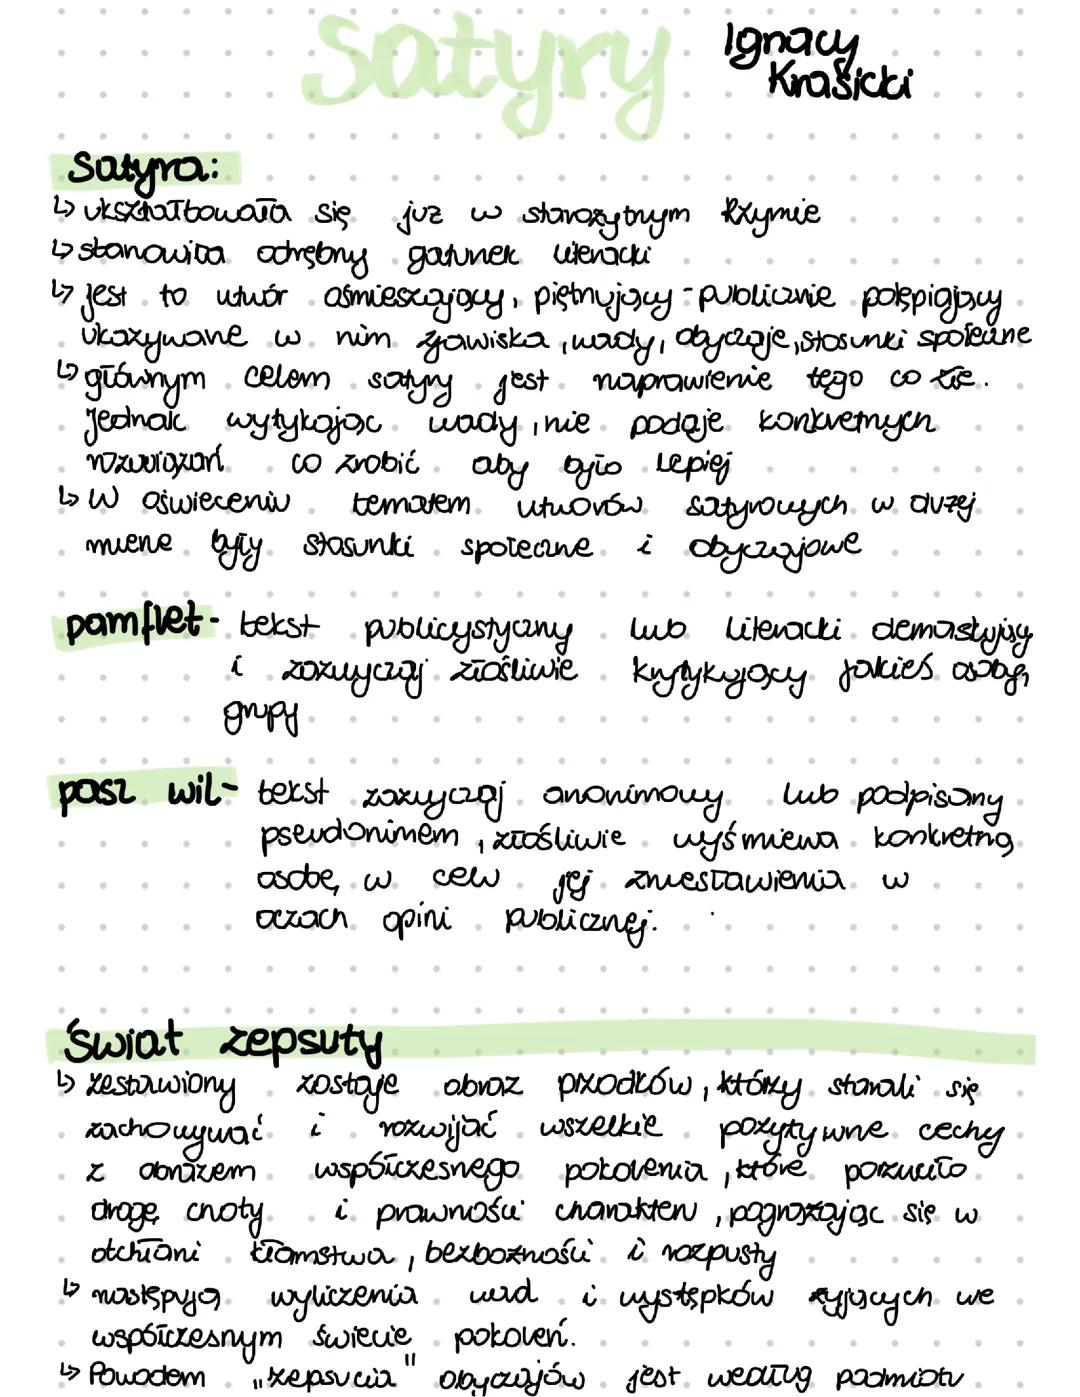 Satyry
Ignacy
Krasicki
Satyra:
↳ ukształtowała się już w starożytnym Rzymie
↳ stanowiła odrębny gatunek literacki
↳ jest to utwór ośmieszający, piętnujący - publicznie potępiający
ukazywane w nim zjawiska, wady, obyczaje, stosunki społeczne
↳ głównym celem satyry jest naprawienie tego co złe.
Jednak wytykając wady, nie podaje konkretnych
rozwiązań co zrobić aby było lepiej
↳ W oświeceniu tematem utworów satyrowych w dużej
mierze były stosunki społeczne i obyczajowe
pamflet - tekst publicystyczny lub literacki demaskujący
i zazwyczaj złośliwie krytykujący jakieś osoby,
grupy
paszkwil - tekst zazwyczaj anonimowy lub podpisany
pseudonimem, złośliwie wyśmiewa konkretną
osobę, w celu jej zniesławienia w
oczach opini publicznej.
Świat zepsuty
↳ zestawiony zostaje obraz przodków, którzy starali się
zachowywać i rozwijać wszelkie pozytywne cechy
z obrazem współczesnego pokolenia, które porzuciło
drogę cnoty i prawności charakteru, pogrążając się w
otchłani kłamstwa, bezbożności i rozpusty
↳ następują wyliczenia wad i występków żyjących we
współczesnym świecie pokoleń.
↳ Powodem "zepsucia" obyczajów jest według podmiotu